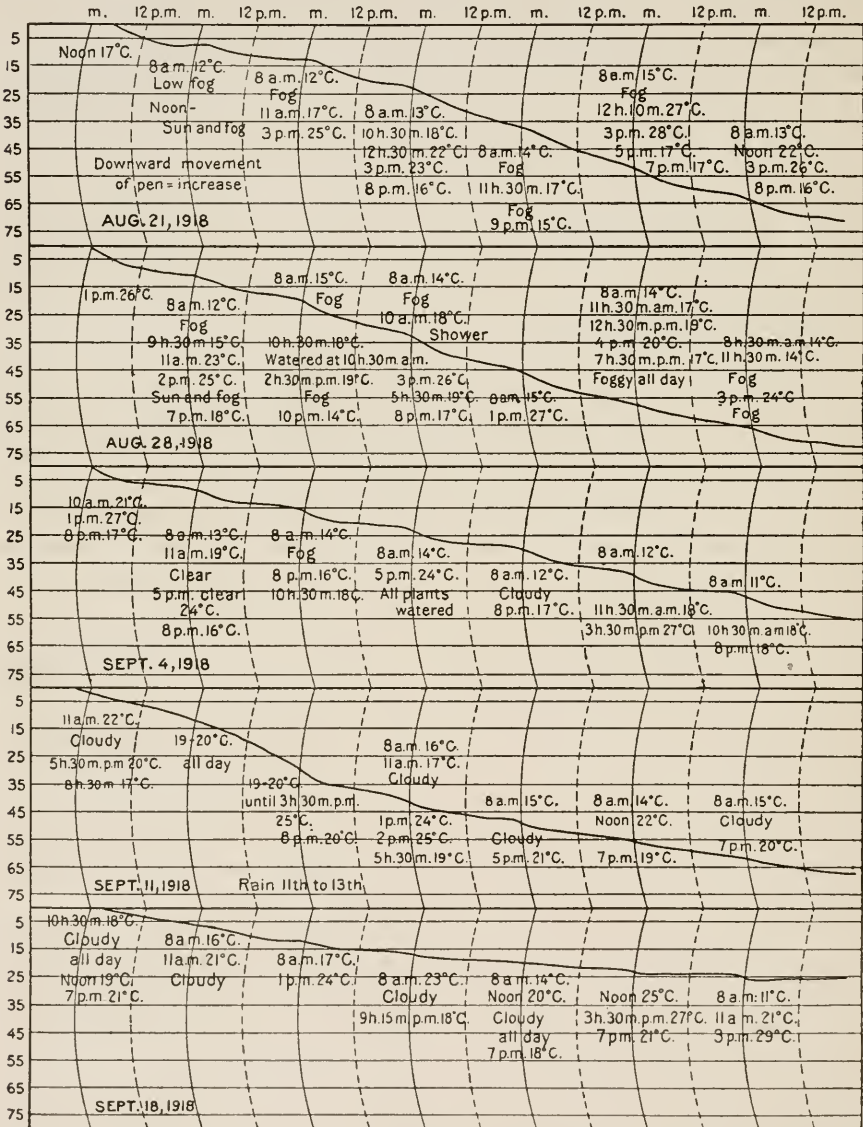 m. 12 p.m. m. 12 p.m. m. 12 p.m. m. 12 p.m. m. 12 p.m. m. 12 p.m. m. 12 p.m.
5
15
25
35
45
55
65
75
Noon 17°C.
8 a.m. 12°C.
Low fog
Noon-
Sun and fog
Downward movement
of pen = increase
AUG. 21, 1918
8 a.m. 12°C.
Fog
11 a.m. 17°C.
3 p.m. 25°C.
8 a.m. 13°C.
10 h. 30 m. 18°C.
12 h. 30 m. 22°C.
3 p.m. 23°C.
8 p.m. 16°C.
8 a.m. 14°C.
Fog
11 h. 30 m. 17°C.
Fog
9 p.m. 15°C.
8 a.m. 15°C.
Fog
12 h. 10 m. 27°C.
3 p.m. 28°C.
5 p.m. 17°C.
7 p.m. 17°C.
8 a.m. 13°C.
Noon 22°C.
3 p.m. 26°C.
8 p.m. 16°C.
5
15
25
35
45
55
65
75
1 p.m. 26°C.
8 a.m. 12°C.
Fog
9 h. 30 m 15°C.
11 a.m. 23°C.
2 p.m. 25°C.
Sun and fog
7 p.m. 18°C.
AUG. 28, 1918
8 a.m. 15°C.
Fog
10 h. 30 m. 18°C.
Watered at 10 h. 30 m. a.m.
2 h. 30 m p.m. 19°C.
Fog
10 p.m. 14°C.
8 a.m. 14°C.
Fog
10 a.m. 18°C.
Shower
3 p.m. 26°C.
5 h. 30 m. 19°C.
8 p.m. 17°C.
8 a.m. 15°C.
1 p.m. 27°C.
8 a.m. 14°C.
11 h. 30 m. am. 17°C.
12 h. 30 m. p.m. 19°C.
4 p.m. 20°C.
7 h. 30 m. p.m. 17°C.
Foggy all day
8 h. 30 m. a.m 14°C.
11 h. 30 m. 14°C.
Fog
3 p.m. 24°C
Fog
5
15
25
35
45
55
65
75
10 a.m. 21°C.
1 p.m. 27°C.
8 p.m. 17°C.
8 a.m. 13°C.
11 a.m. 19°C.
Clear
5 p.m. clear
24°C.
8 p.m. 16°C.
SEPT. 4, 1918
8 a.m. 14°C.
Fog
8 p.m. 16°C.
10 h. 30 m. 18°C.
8 a.m. 14°C.
5 p.m. 24°C.
All plants
watered
8 a.m. 12°C.
Cloudy
8 p.m. 17°C.
8 a.m. 12°C.
11 h. 30 m. a.m. 18°C.
3 h. 30 m. p.m 27°C
8 a.m. 11°C.
10 h 30 m. am 18°C.
8 p.m. 18°C.
5
15
25
35
45
55
65
75
11 a.m. 22°C.
Cloudy
5 h. 30 m. p.m 20°C.
8 h. 30 m 17°C.
19-20°C.
all day
SEPT. 11, 1918
19-20°C.
until 3 h. 30 m. p.m.
25°C.
8 p.m. 20°C.
Rain 11th to 13th
8 a.m. 16°C.
11 a.m. 17°C.
Cloudy
1 p.m. 24°C.
2 p.m. 25°C.
5 h. 30 m. 19°C.
8 a.m. 15°C.
Cloudy
5 p.m. 21°C.
8 a.m. 14°C.
Noon 22°C.
7 p.m. 19°C.
8 a.m. 15°C.
Cloudy
7 p.m. 20°C.
5
15
25
35
45
55
65
75
10 h. 30 m. 18°C.
Cloudy
all day
Noon 19°C.
7 p.m 21°C.
8 a.m. 16°C.
11 a.m. 21°C.
Cloudy
8 a.m. 17°C.
1 p.m. 24°C.
8 a.m. 23°C.
Cloudy
9 h. 15 m p.m. 18°C.
8 a.m. 14°C.
Noon 20°C.
Cloudy
all day
7 p.m. 18°C.
Noon 25°C.
3 h. 30 m. p.m. 27°C.
7 p.m. 21°C.
8 a.m. 11°C.
11 a.m. 21°C.
3 p.m. 29°C.
SEPT. 18, 1918